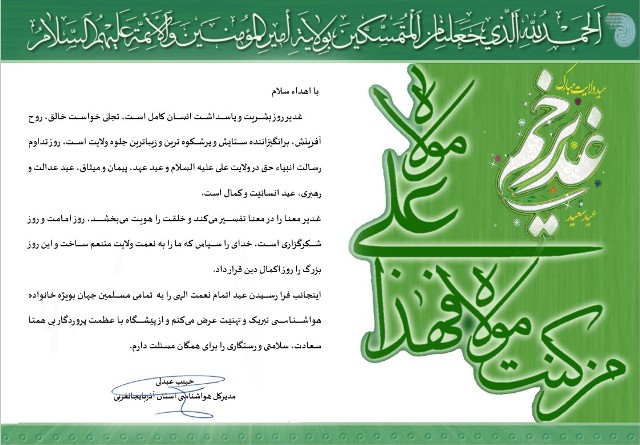 الحمد لله الذي جعلنا من المتمسكين بولاية أمير المؤمنين والأئمة عليهم السلام
با اهداء سلام
غدیر روز بشریت و پاسداشت انسان کامل است. تجلی خواست خالق، روح
آفرینش، برانگیزاننده ستایش و پرشکوه ترین و زیباترین جلوه ولایت است. روز تداوم
رسالت انبیاء حق در ولایت علی علیه السلام و عید عهد، پیمان و میثاق، عید عدالت و
رهبری، عید انسانیت و کمال است.
غدیر معنا را در معنا تفسیر می‌کند و خلقت را هویت می‌بخشد. روز امامت و روز
شکرگزاری است. خدای را سپاس که ما را به نعمت ولایت متنعم ساخت و این روز
بزرگ را روز اکمال دین قرار داد.
اینجانب فرا رسیدن عید اتمام نعمت الهی را به تمامی مسلمین جهان بویژه خانواده
هواشناسی تبریک و تهنیت عرض می‌کنم و از پیشگاه با عظمت پروردگار بی همتا
سعادت، سلامتی و رستگاری را برای همگان مسئلت دارم.
حبیب عبدلی
مدیرکل هواشناسی استان آذربایجانغربی
عید ولایت مبارک
غدیر خم
عید سعید
من کنت مولاه فهذا علی مولاه